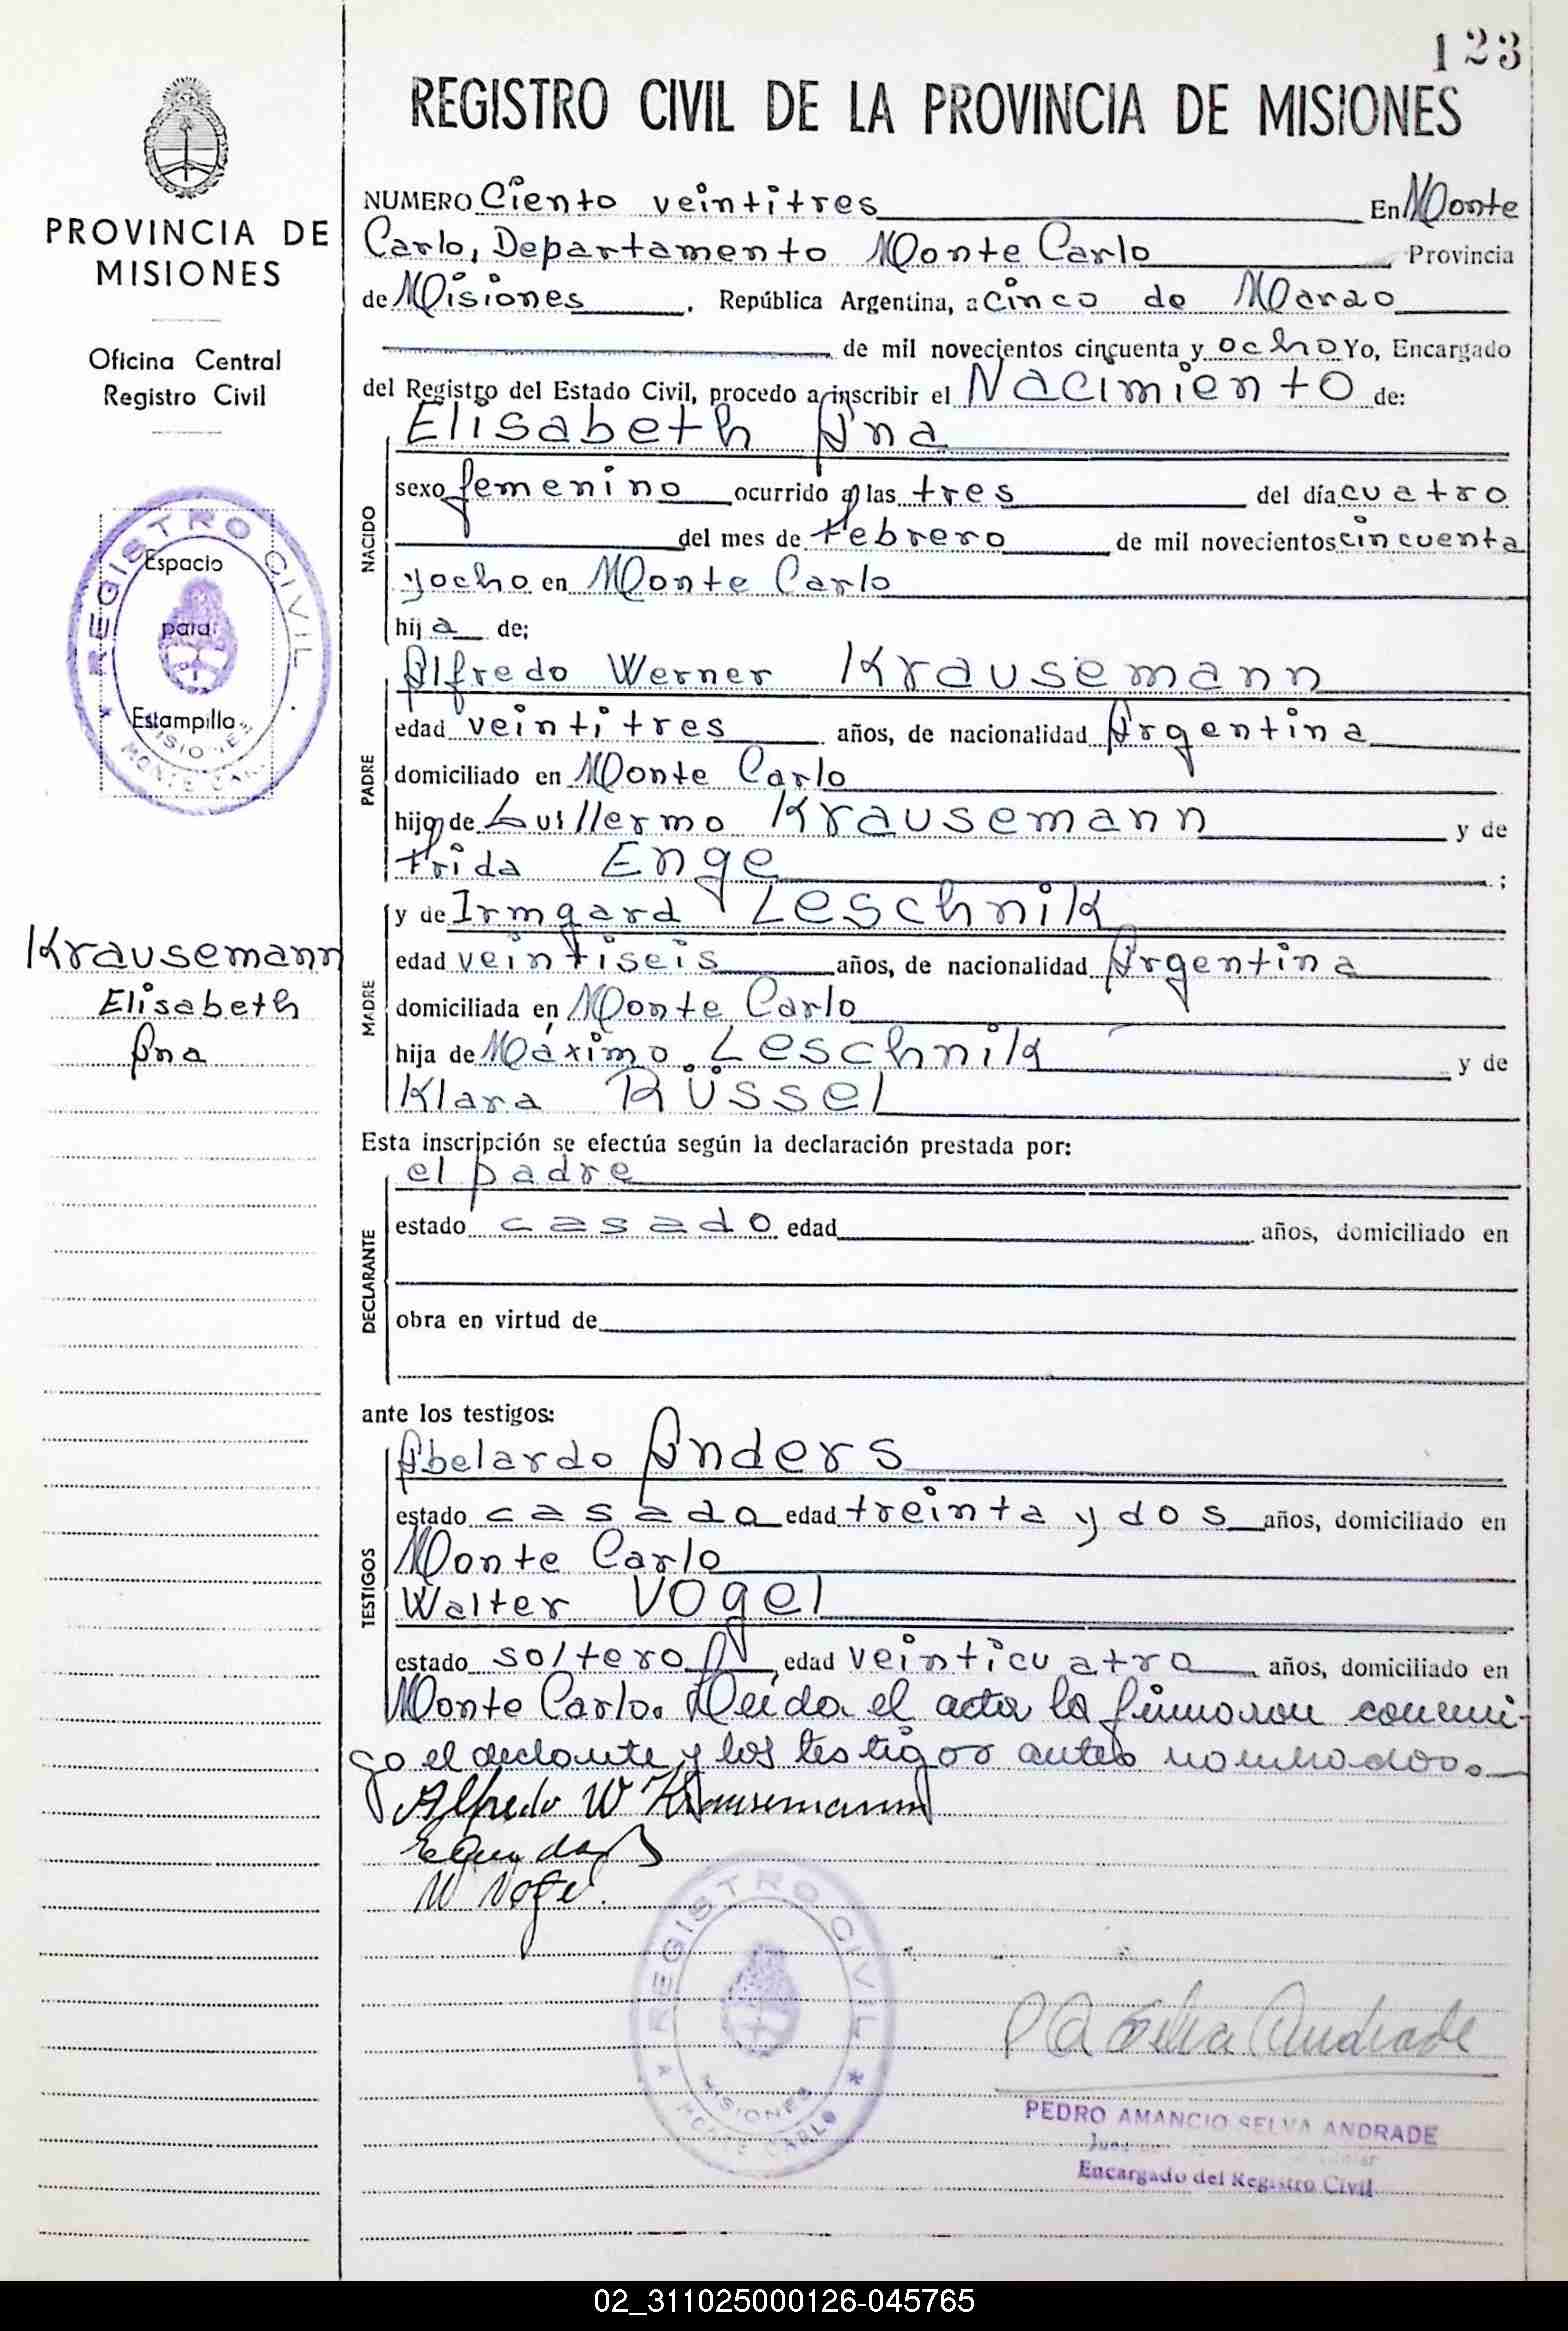 123
REGISTRO CIVIL DE LA PROVINCIA DE MISIONES
PROVINCIA DE
MISIONES
Oficina Central
Registro Civil
REGISTRO CIVIL
Espacio
para
Estampilla
MISIONES
MONTE CARLO
Krausemann
Elisabeth
Ana
NUMERO Ciento veintitres En Monte
Carlo, Departamento Monte Carlo Provincia
de Misiones, República Argentina, a cinco de Marzo
de mil novecientos cincuenta y ocho Yo, Encargado
del Registro del Estado Civil, procedo a inscribir el Nacimiento de:
Elisabeth Ana
NACIDO
sexo femenino ocurrido a las tres del día cuatro
del mes de Febrero de mil novecientos cincuenta
y ocho en Monte Carlo
hija de;
Alfredo Werner Krausemann
PADRE
edad veintitres años, de nacionalidad Argentina
domiciliado en Monte Carlo
hijo de Guillermo Krausemann y de
Frida Enge ;
MADRE
y de Irmgard Leschnik
edad veintiseis años, de nacionalidad Argentina
domiciliada en Monte Carlo
hija de Máximo Leschnik y de
Klara Rüssel
Esta inscripción se efectúa según la declaración prestada por:
DECLARANTE
el padre
estado casado edad años, domiciliado en
obra en virtud de
ante los testigos:
TESTIGOS
Abelardo Anders
estado casado edad treinta y dos años, domiciliado en
Monte Carlo
Walter Vogel
estado soltero edad veinticuatro años, domiciliado en
Monte Carlo. Leída el acta la firmaron conmi-
go el declante y los testigos antes nombrados.
Alfredo W Krausemann
W Vogel
REGISTRO CIVIL
MISIONES
MONTE CARLO
P A Selva Andrade
PEDRO AMANCIO SELVA ANDRADE
Encargado del Registro Civil
02_311025000126-045765